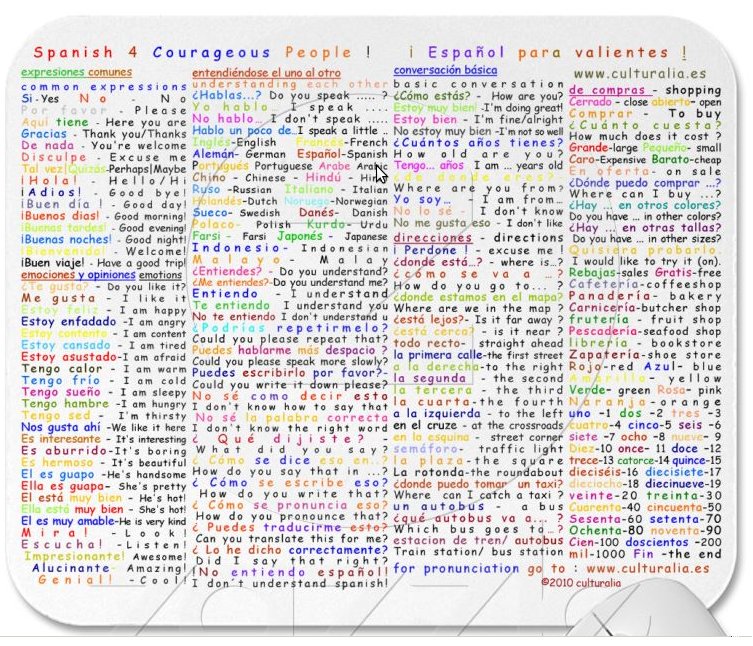 Spanish 4 Courageous People ! ¡ Español para valientes !
expresiones comunes
common expressions
Si-Yes No - No
Por favor - Please
Aquí tiene - Here you are
Gracias - Thank you/Thanks
De nada - You're welcome
Disculpe - Excuse me
Tal vez|Quizás-Perhaps|Maybe
¡Hola! - Hello/Hi
¡Adios! - Good bye!
¡Buen día ! - Good day!
¡Buenos días! - Good morning!
¡Buenas tardes! - Good evening!
¡Buenas noches! - Good night!
¡Bienvenida! - Welcome!
¡Buen viaje! - Have a good trip!
emociones y opiniones emotions
¿Te gusta? - Do you like it?
Me gusta - I like it
Estoy feliz - I am happy
Estoy enfadado -I am angry
Estoy contento - I am content
Estoy cansado - I am tired
Estoy asustado-I am afraid
Tengo calor - I am warm
Tengo frío - I am cold
Tengo sueño - I am sleepy
Tengo hambre - I am hungry
Tengo sed - I'm thirsty
Nos gusta ahí -We like it here
Es interesante - It's interesting
Es aburrido-It's boring
Es hermoso - It's beautiful
El es guapo -He's handsome
Ella es guapa- She's pretty
El está muy bien - He's hot!
Ella está muy bien - She's hot!
El es muy amable-He is very kind
Mira! - Look!
Escucha! - Listen!
Impresionante! Awesome!
Alucinante- Amazing!
Genial! -Cool!
entendiéndose el uno al otro
understanding each other
¿Hablas...? Do you speak ..... ?
Yo hablo - I speak ....
No hablo.. I don't speak .....
Hablo un poco de..I speak a little ..
Inglés-English Francés-French
Alemán- German Español-Spanish
Portugués Portuguese Arabe Arabic
Chino - Chinese - Hindú - Hindi
Ruso -Russian Italiano - Italian
Holandés-Dutch Noruego-Norwegian
Sueco- Swedish Danés- Danish
Polaco- Polish Kurdo- Urdu
Farsi - Farsi Japonés - Japanese
Indonesio- Indonesian
Malayo - Malay
¿Entiendes? - Do you understand?
¿Me entiendes?-Do you understand me?
Entiendo - I understand
Te entiendo -I understand you
No te entiendo I don't understand u
¿Podrías repetirmelo?
Could you please repeat that?
Puedes hablarme más despacio ?
Could you please speak more slowly?
Puedes escribirlo por favor?-
Could you write it down please?
No sé como decir esto
I don't know how to say that
No sé la palabra correcta
I don't know the right word
¿ Qué dijiste? -
What did you say?
¿ Cómo se dice eso en..?
How do you say that in ...?
¿ Cómo se escribe eso?
How do you write that?
¿ Cómo se pronuncia eso?
How do you pronounce that?
¿ Puedes traducirme esto?
Can you translate this for me?
¿ Lo he dicho correctamente?
Did I say that right?
¡No entiendo español!
I don't understand spanish!
conversación básica
basic conversation
¿Cómo estás? - How are you?
Estoy muy bien -I'm doing great!
Estoy bien - I'm fine/alright
No estoy muy bien -I'm not so well
¿Cuántos años tienes?
How old are you?
Tengo... años I am ... years old
¿de donde eres?
Where are you from?
Yo soy... - I am from...
No lo sé - I don't know
No me gusta eso - I don't like
direcciones - directions
¡ Perdone ! - excuse me !
¿donde está...? - where is...?
¿como se va a... ?
How do you go to... ?
¿donde estamos en el mapa?
Where are we in the map ?
¿está lejos?- Is it far away ?
¿está cerca? - is it near ?
todo recto- straight ahead
la primera calle-the first street
a la derecha-to the right
la segunda - the second
la tercera - the third
la cuarta-the fourth
a la izquierda - to the left
en el cruze - at the crossroads
en la esquina - street corner
semáforo- traffic light
la plaza-the square
La rotonda-the roundabout
¿donde puedo tomar un taxi?
Where can I catch a taxi ?
un autobus - a bus
¿qué autobus va a... ?
Which bus goes to...?
estacion de tren/ autobus
Train station/ bus station
for pronunciation go to : www.culturalia.es
www.culturalia.es
de compras - shopping
Cerrado - close abierto- open
Comprar - To buy
¿Cuánto cuesta?
How much does it cost ?
Grande-large Pequeño- small
Caro-Expensive Barato-cheap
En oferta- on sale
¿Dónde puedo comprar ...?
Where can I buy ...?
¿Hay ... en otros colores?
Do you have ... in other colors?
¿Hay ... en otras tallas?
Do you have ... in other sizes?
Quisiera probarlo.
I would like to try it (on).
Rebajas-sales Gratis-free
Cafetería-coffeeshop
Panadería- bakery
Carnicería-butcher shop
frutería - fruit shop
Pescadería-seafood shop
librería - bookstore
Zapatería-shoe store
Rojo-red Azul- blue
Amarillo- yellow
Verde- green Rosa- pink
Naranja-orange
uno -1 dos -2 tres -3
cuatro-4 cinco-5 seis -6
siete -7 ocho -8 nueve -9
Diez-10 once- 11 doce -12
trece-13 catorce-14 quince-15
dieciséis-16 diecisiete-17
dieciocho-18 diecinueve-19
veinte-20 treinta-30
Cuarenta-40 cincuenta-50
Sesenta-60 setenta-70
Ochenta-80 noventa-90
Cien-100 doscientos -200
mil-1000 Fin -the end
©2010 culturalia